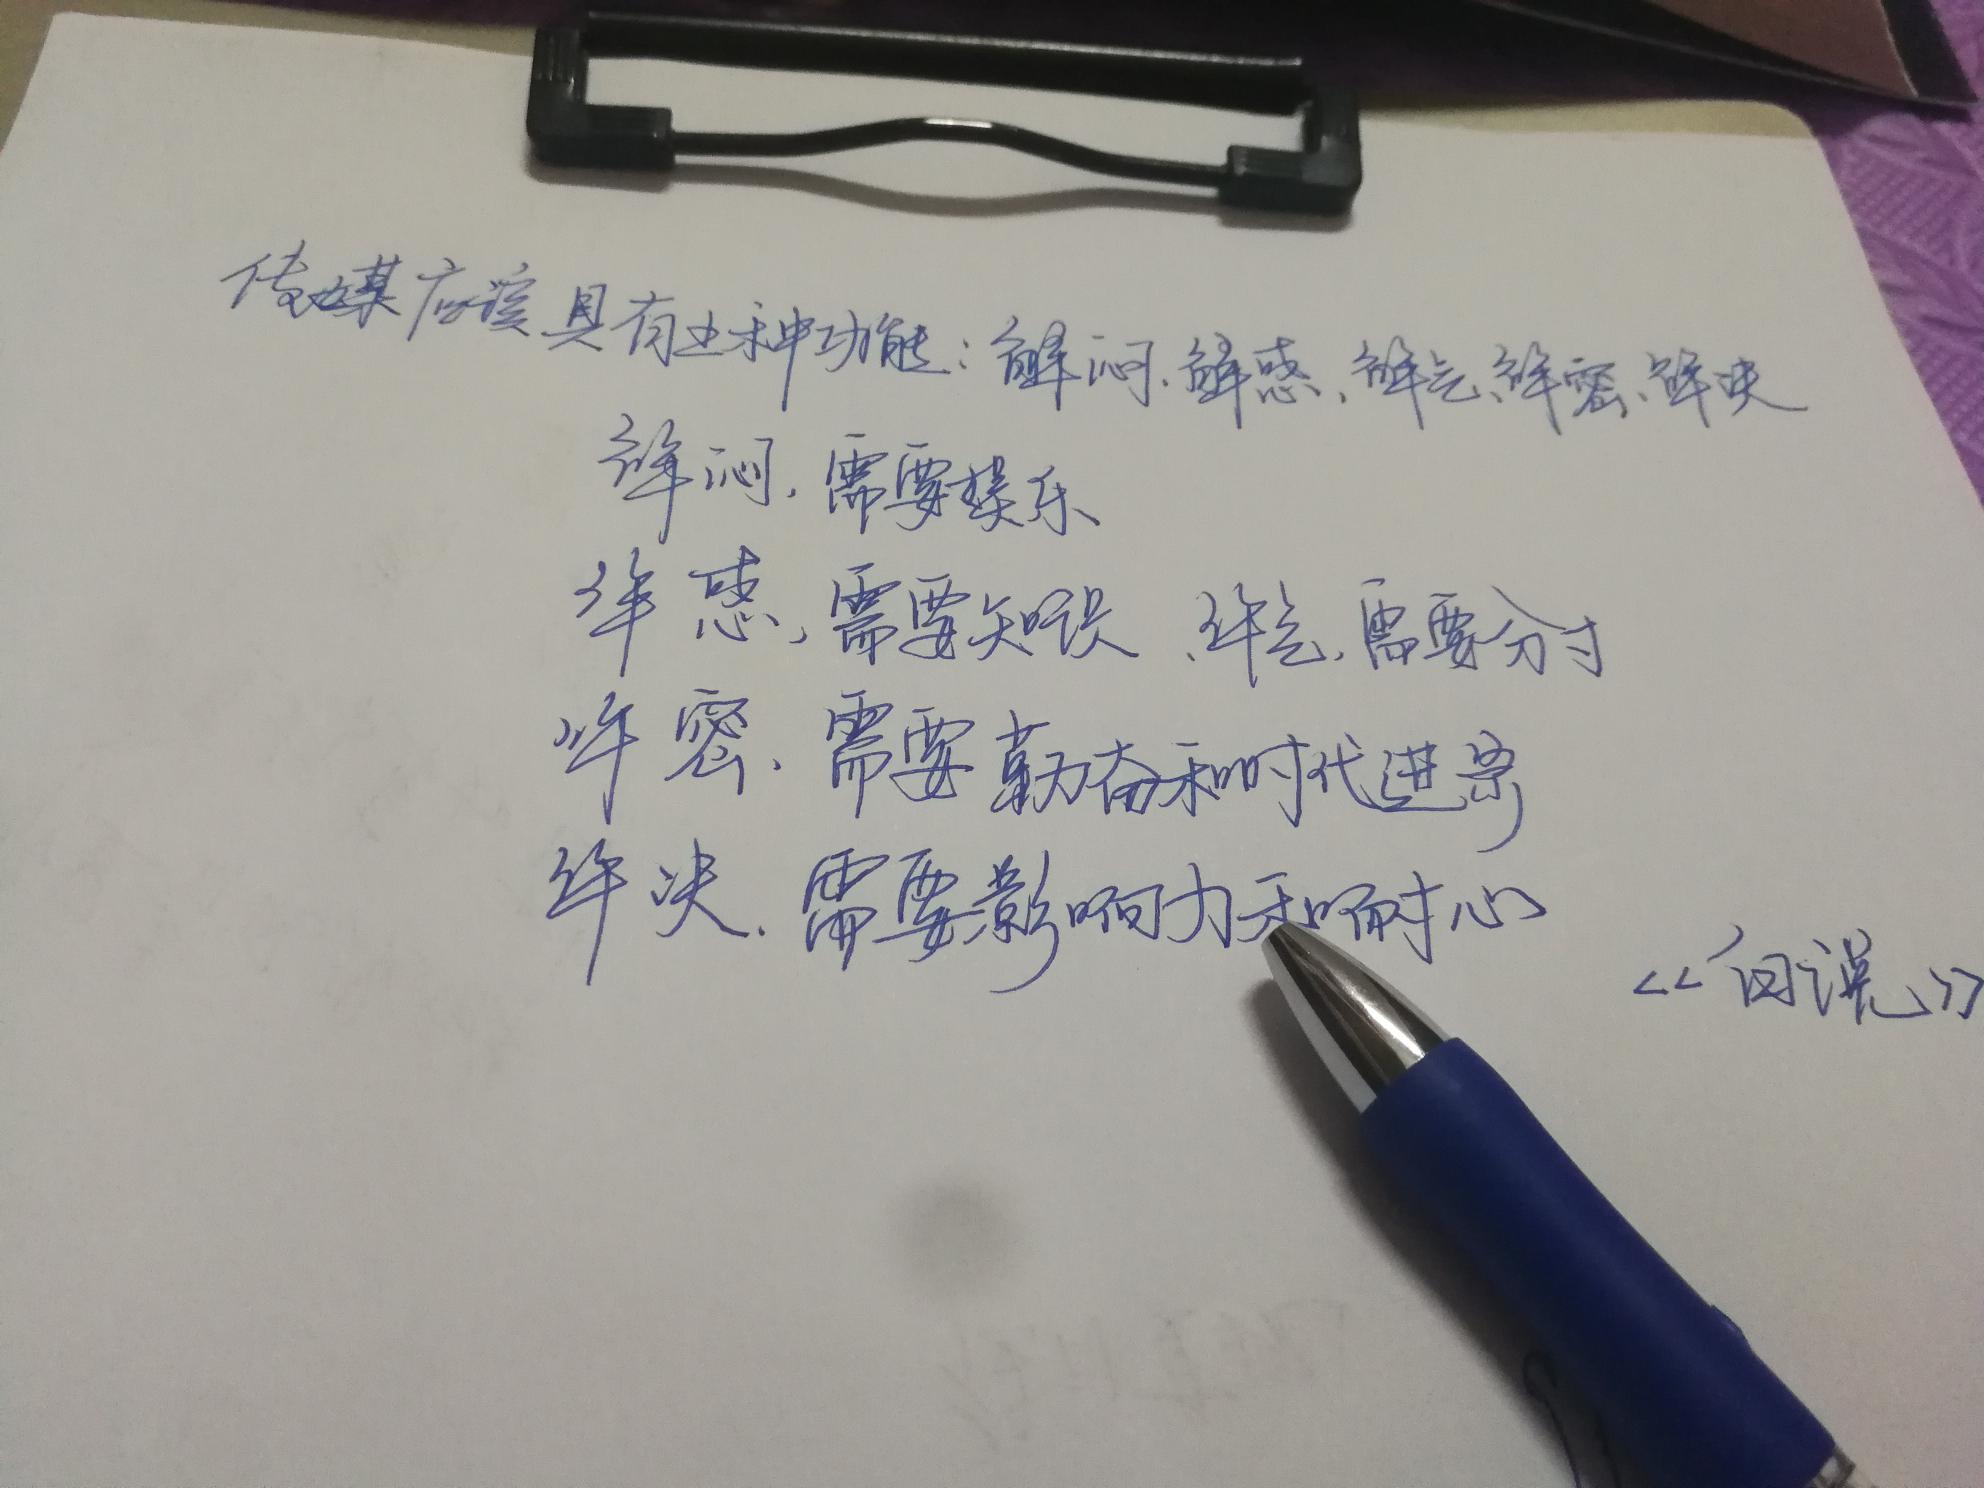 传媒应该具有五种功能：解闷、解惑、解气、解密、解决
解闷、需要娱乐
解惑、需要知识、解气、需要分寸
解密、需要勤奋和时代进步
解决、需要影响力和耐心
《白说》